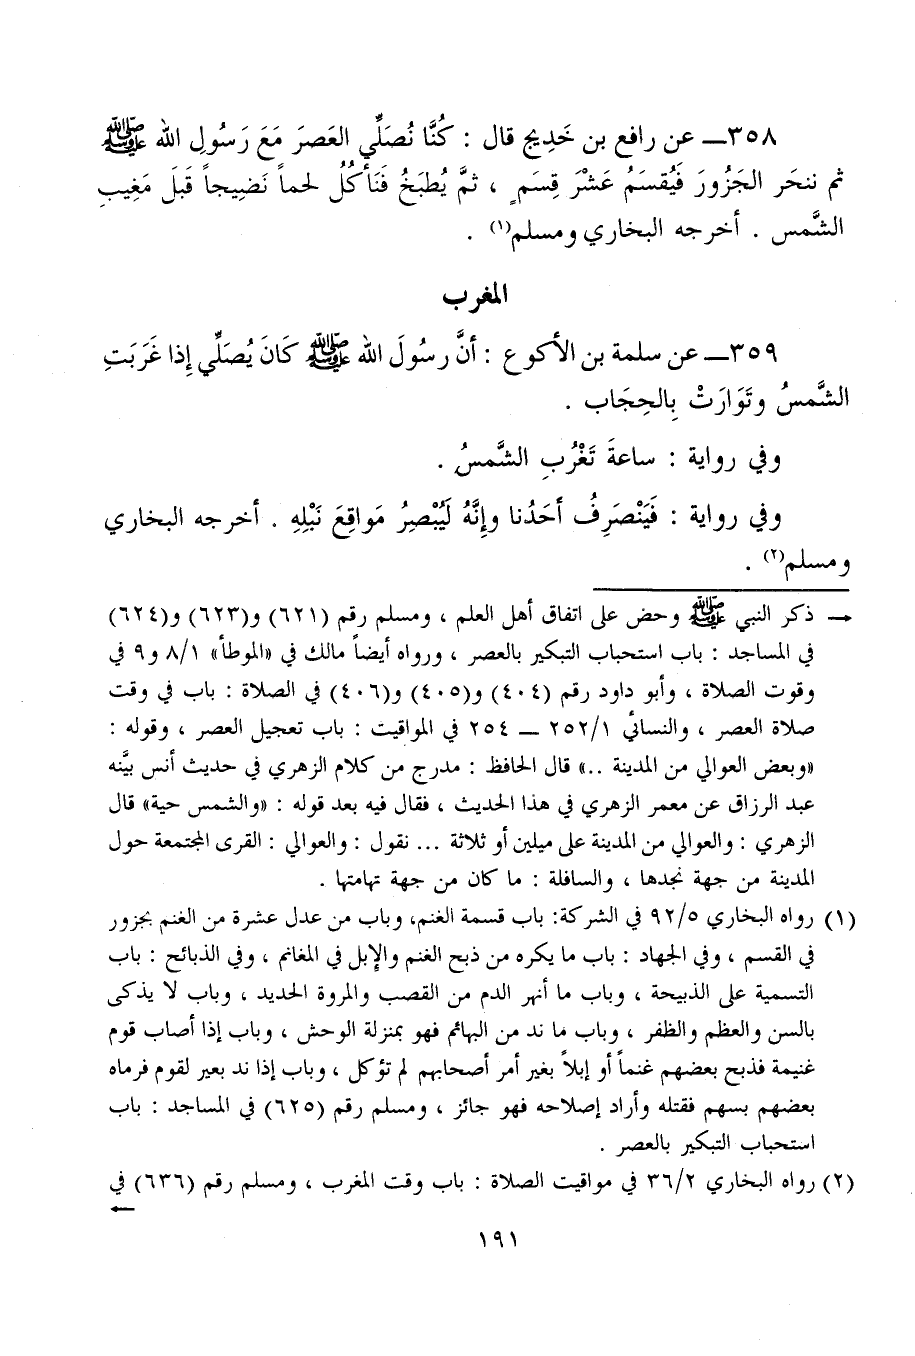 ٣٥٨ـــ عن رافع بن خَدِيج قال : كُنَّا نُصَلِّي العَصرَ مَعَ رَسُولِ الله ﷺ
ثم ننحَر الجَزُورَ فَيُقسَمُ عَشْرَ قِسَمٍ ، ثمَّ يُطبَخُ فَنَأكُلُ لحماً نَضِيجاً قَبلَ مَغِيبِ
الشَّمس . أخرجه البخاري ومسلم(١) .
المغرب
٣٥٩ـــ عن سلمة بن الأكوع : أنَّ رسُولَ الله ﷺ كَانَ يُصَلِّي إِذا غَرَبَتِ
الشَّمسُ وتَوَارَتْ بِالحِجَاب .
وفي رواية : ساعةَ تَغْرُبِ الشَّمسُ .
وفي رواية : فَيَنْصَرِفُ أَحَدُنا وإِنَّهُ لَيُبْصِرُ مَواقِعَ نَبْلِهِ . أخرجه البخاري
ومسلم(٢) .
← ذكر النبي ﷺ وحض على اتفاق أهل العلم ، ومسلم رقم (٦٢١) و(٦٢٣) و(٦٢٤)
في المساجد : باب استحباب التبكير بالعصر ، ورواه أيضاً مالك في «الموطأ» ٨/١ و٩ في
وقوت الصلاة ، وأبو داود رقم (٤٠٤) و(٤٠٥) و(٤٠٦) في الصلاة : باب في وقت
صلاة العصر ، والنسائي ٢٥٢/١ ــ ٢٥٤ في المواقيت : باب تعجيل العصر ، وقوله :
«وبعض العوالي من المدينة ..» قال الحافظ : مدرج من كلام الزهري في حديث أنس بيَّنه
عبد الرزاق عن معمر الزهري في هذا الحديث ، فقال فيه بعد قوله : «والشمس حية» قال
الزهري : والعوالي من المدينة على ميلين أو ثلاثة ... نقول : والعوالي : القرى المجتمعة حول
المدينة من جهة نجدها ، والسافلة : ما كان من جهة تهامتها .
(١) رواه البخاري ٩٢/٥ في الشركة: باب قسمة الغنم، وباب من عدل عشرة من الغنم بجزور
في القسم ، وفي الجهاد : باب ما يكره من ذبح الغنم والإبل في المغانم ، وفي الذبائح : باب
التسمية على الذبيحة ، وباب ما أنهر الدم من القصب والمروة الحديد ، وباب لا يذكى
بالسن والعظم والظفر ، وباب ما ند من البهائم فهو بمنزلة الوحش ، وباب إذا أصاب قوم
غنيمة فذبح بعضهم غنماً أو إبلاً بغير أمر أصحابهم لم تؤكل ، وباب إذا ند بعير لقوم فرماه
بعضهم بسهم فقتله وأراد إصلاحه فهو جائز ، ومسلم رقم (٦٢٥) في المساجد : باب
استحباب التبكير بالعصر .
(٢) رواه البخاري ٣٦/٢ في مواقيت الصلاة : باب وقت المغرب ، ومسلم رقم (٦٣٦) في
←
١٩١